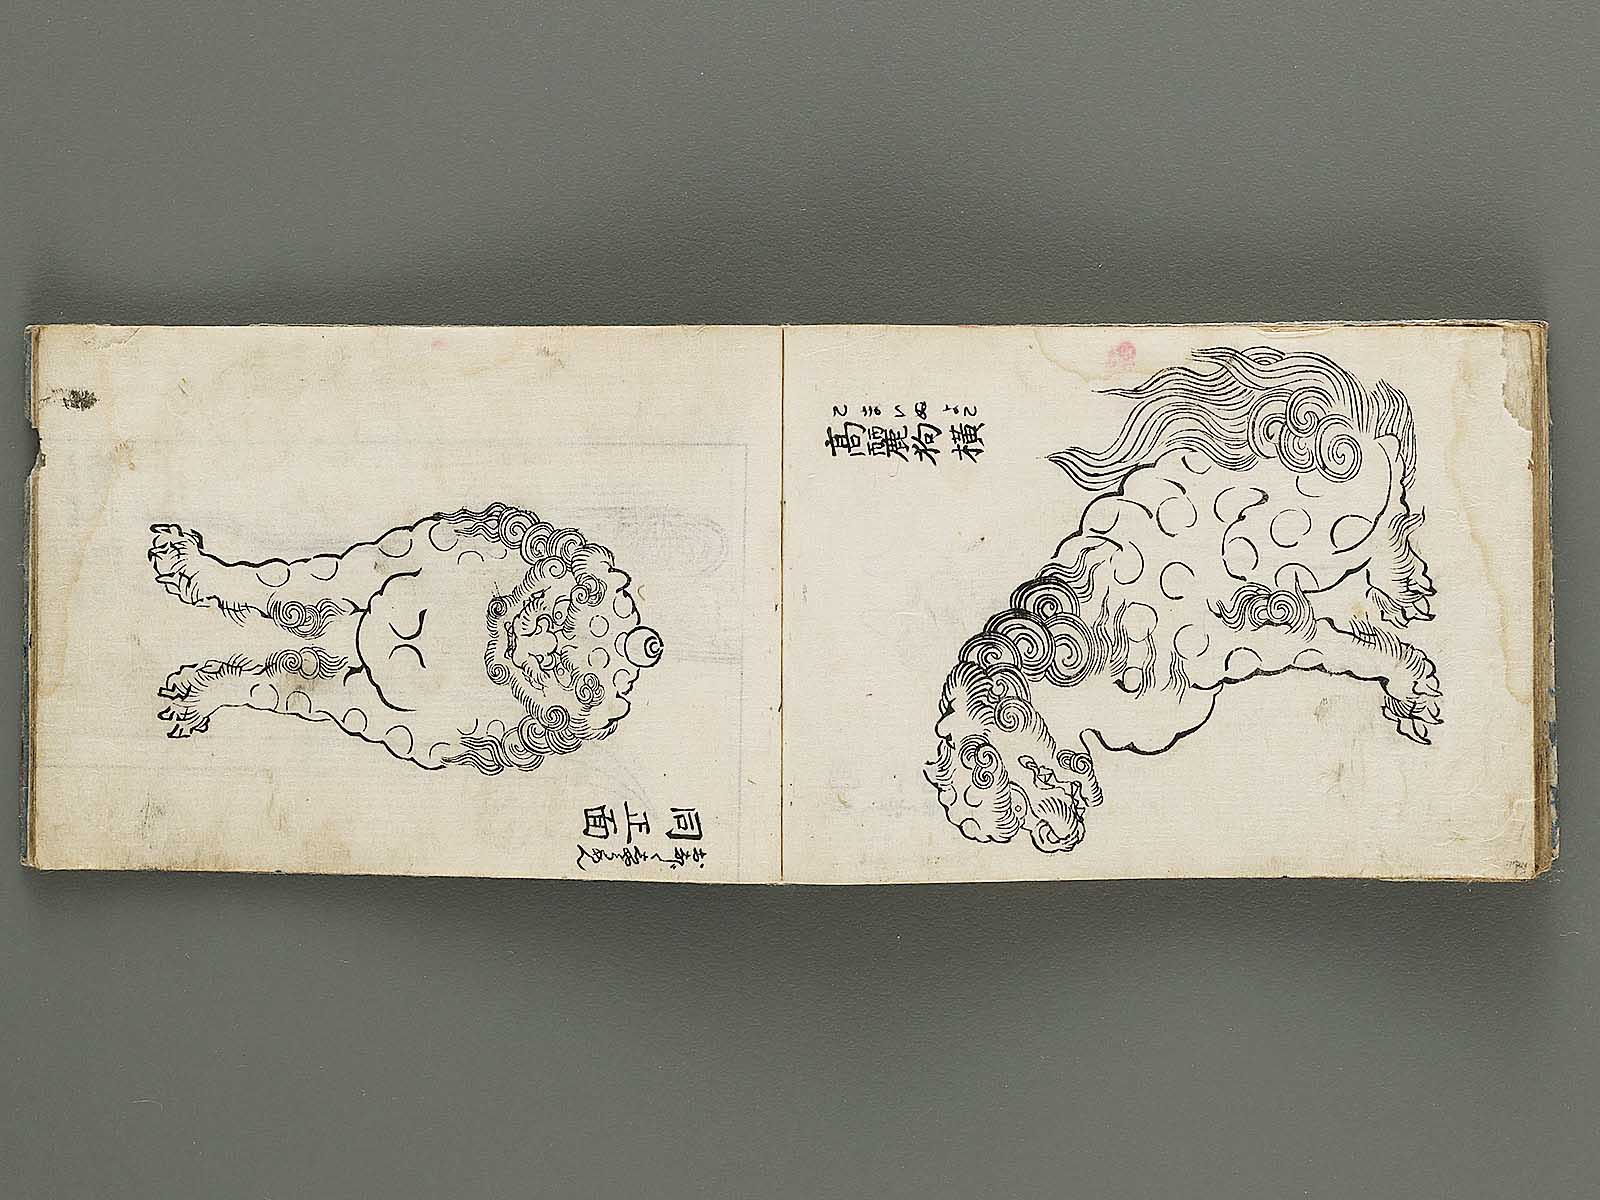 高麗狗横
こまいぬよこ
同正面
おなじくしやうめん